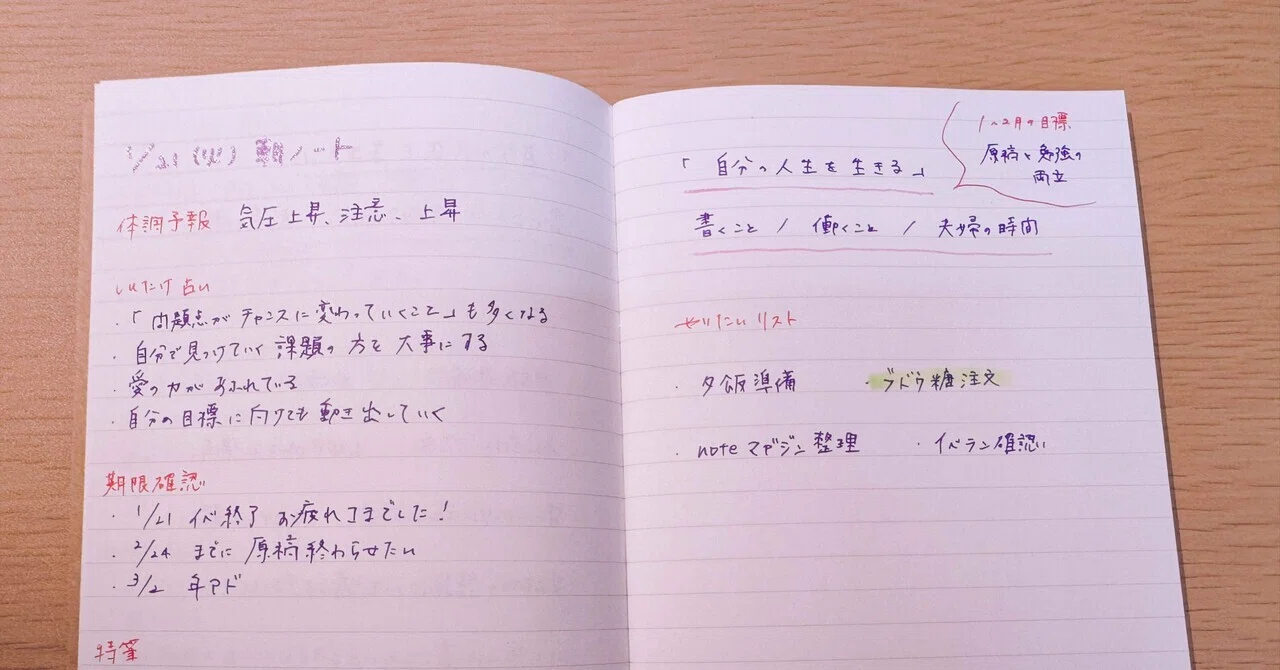 1/21 (火) 朝ノート
体調予報 気圧上昇、注意、上昇
しいたけ占い
・「問題点がチャンスに変わっていくこと」も多くなる
・自分で見つけていく課題の方を大事にする
・愛の力があふれている
・自分の目標に向けても動き出していく
期限確認
・1/21 イベ終了 お疲れさまでした!
・2/24 までに 原稿終わらせたい
・3/2 年アド
特筆
1〜2月の目標
原稿と勉強の
両立
「自分の人生を生きる」
書くこと / 働くこと / 夫婦の時間
やりたいリスト
・夕飯準備 ・ブドウ糖注文
・noteマガジン整理 ・イベラン確認